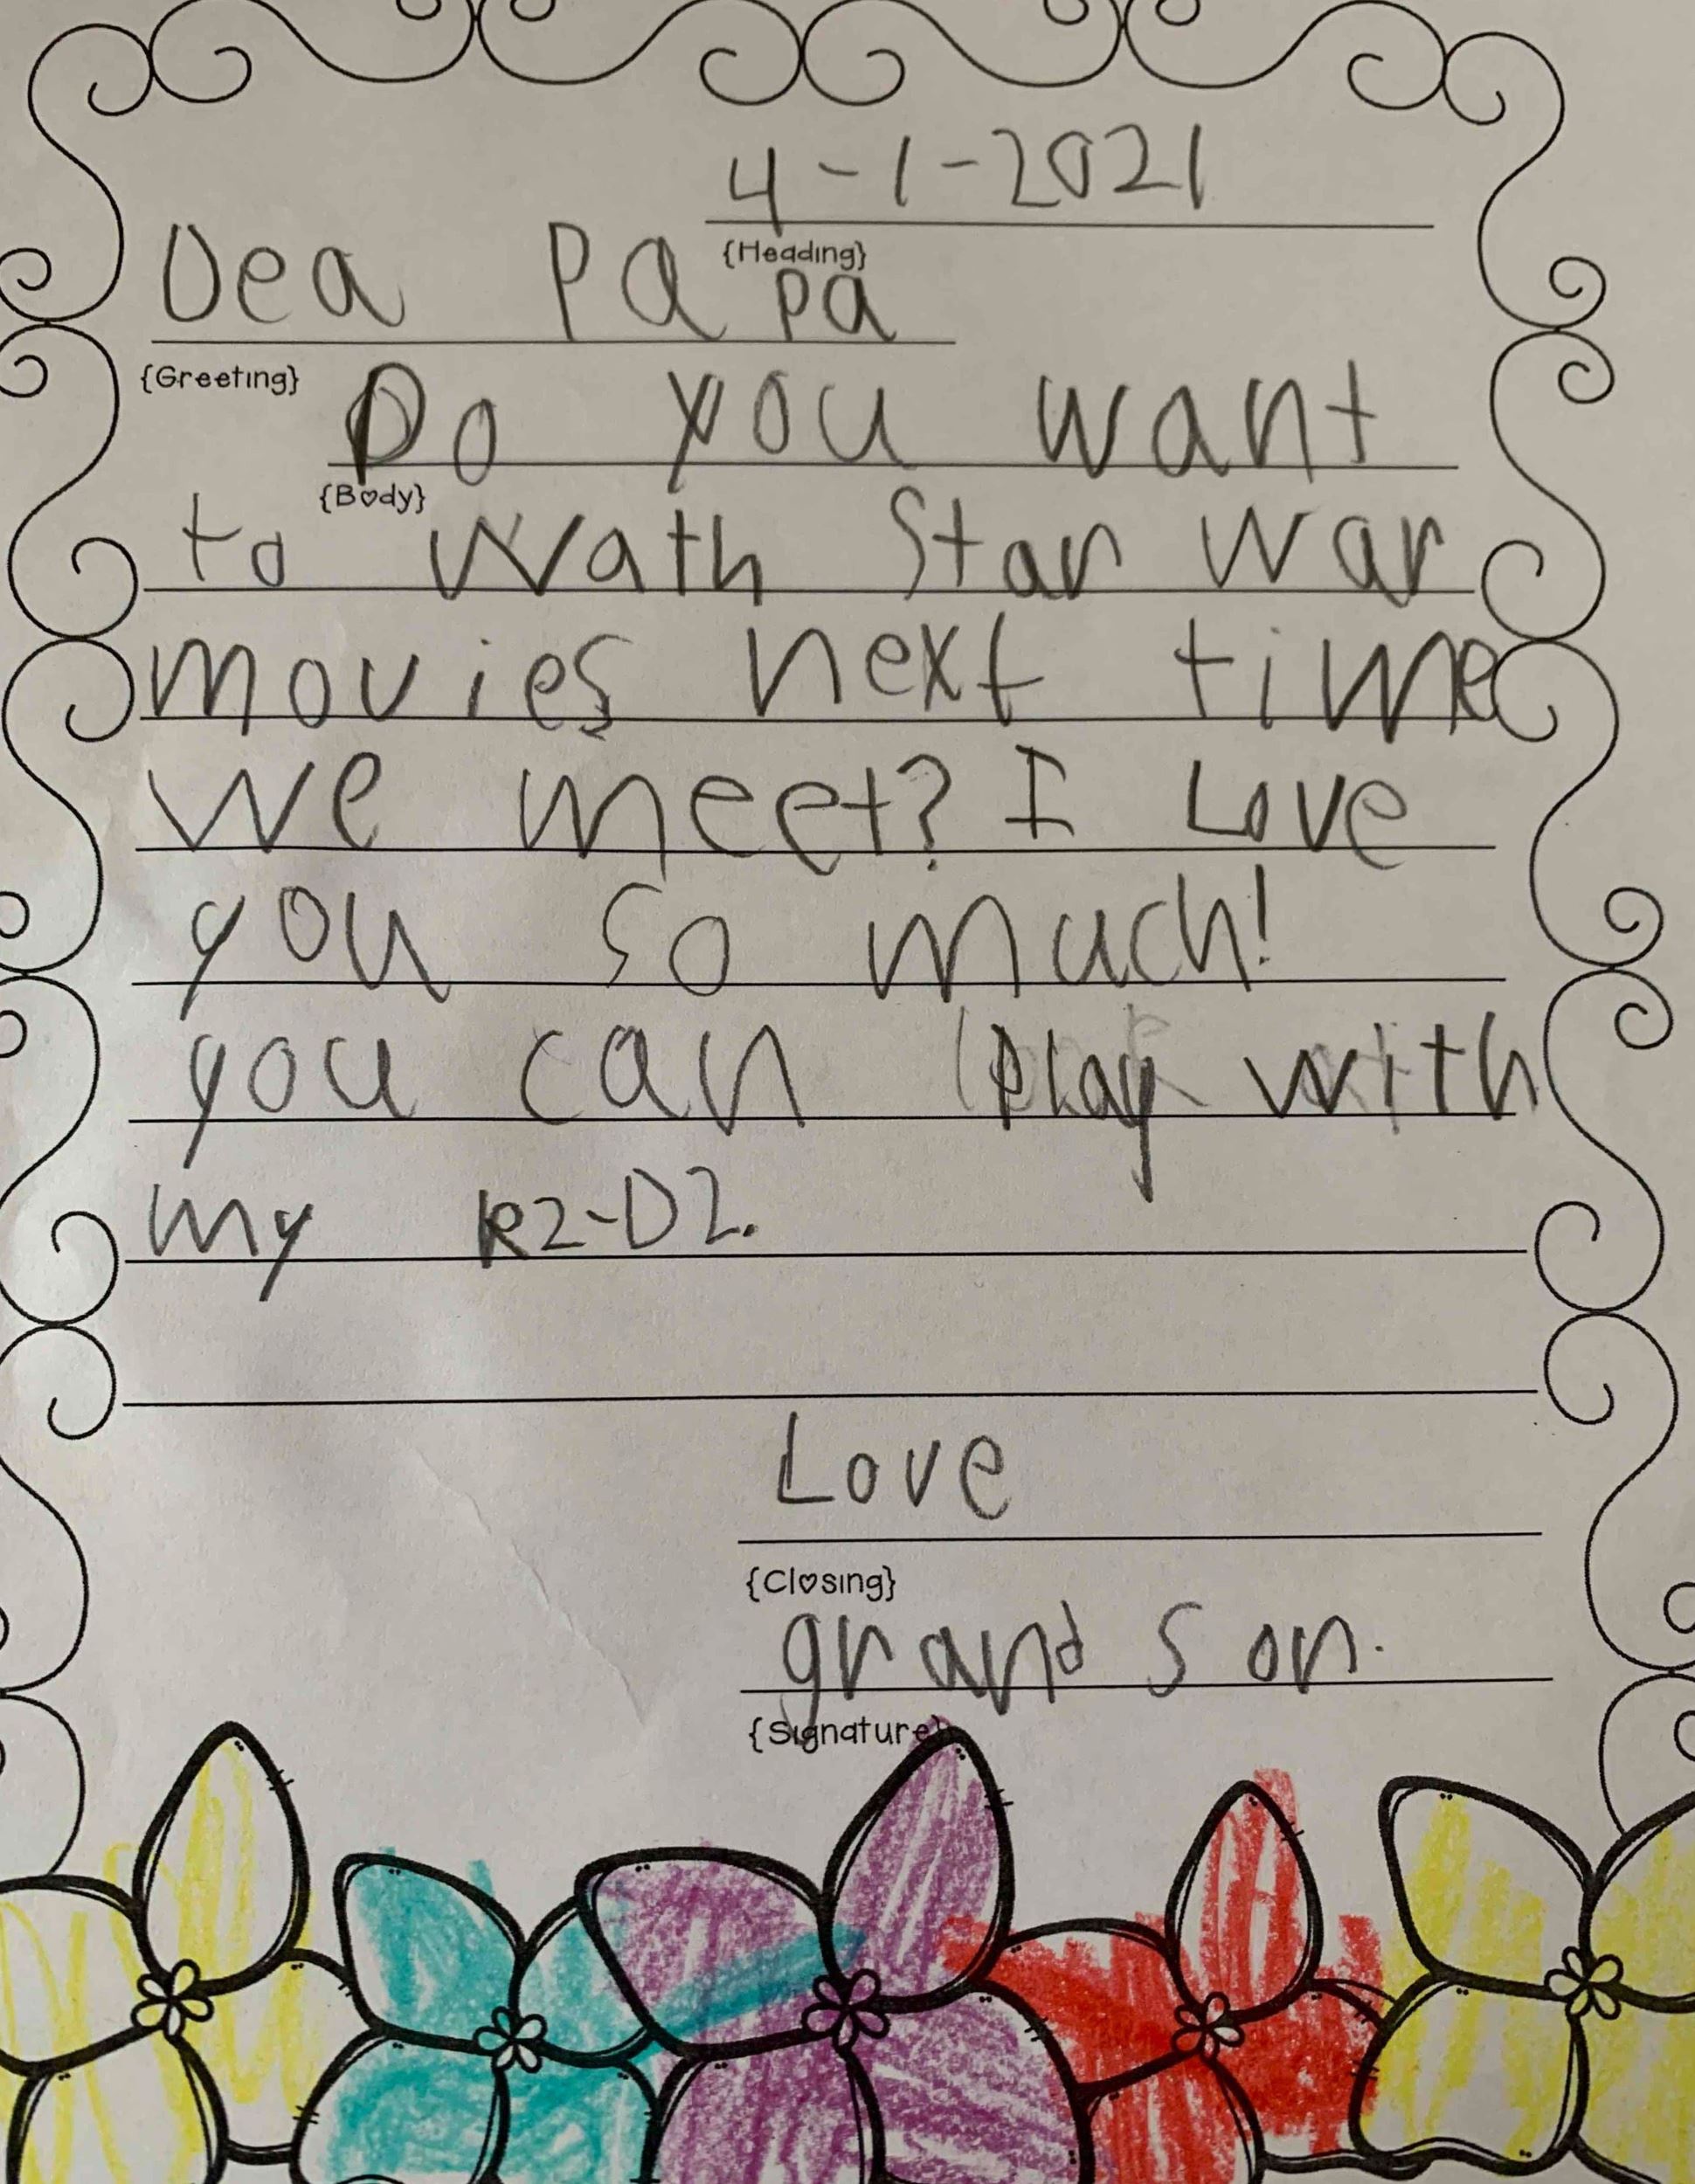 4-1-2021
{Heading}
Dea Papa
{Greeting}
Do you want
{Body}
to wath Star war
movies next time
we meet? I Love
you so much!
you can play with
my R2-D2.
Love
{Closing}
grand son.
{Signature}